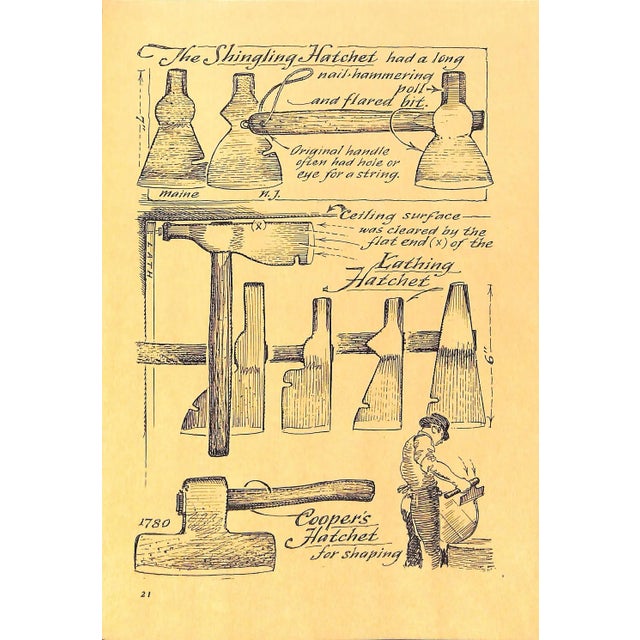 The Shingling Hatchet had a long
nail-hammering
poll
and flared bit.
7"
Original handle
often had hole or
eye for a string.
maine
N.J.
Ceiling surface
was cleared by the
flat end (x) of the
(x)
LATH
Lathing
Hatchet
6"
1780
Cooper's
Hatchet
for shaping
21